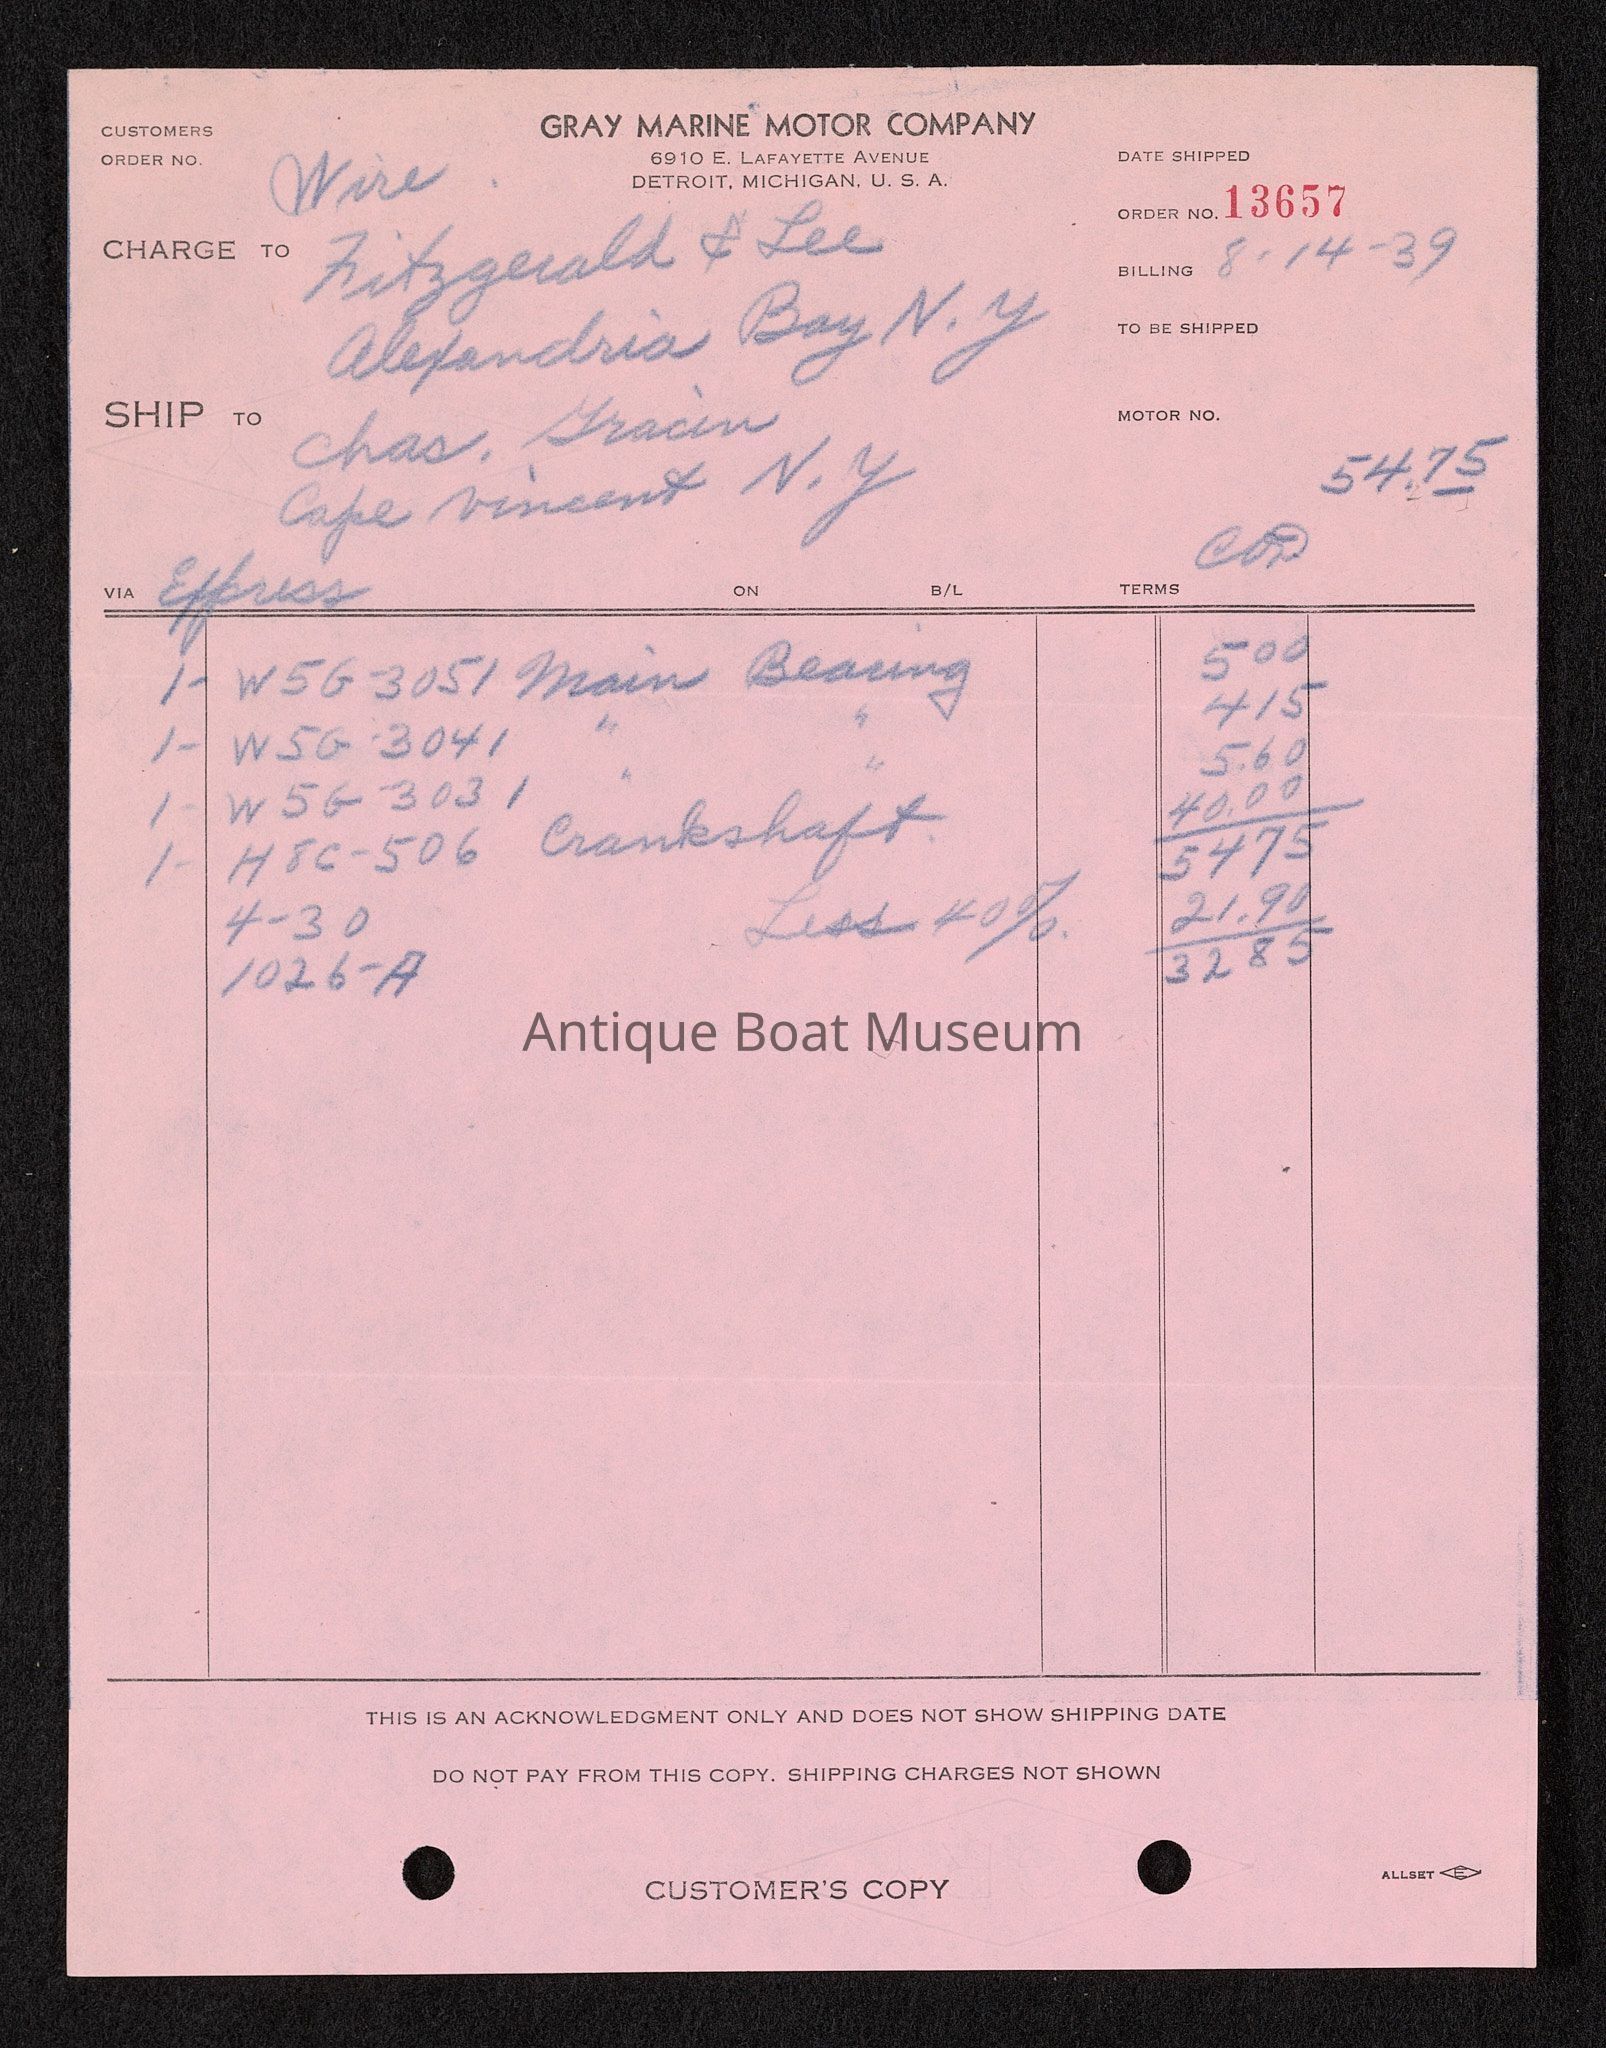 GRAY MARINE MOTOR COMPANY
6910 E. LAFAYETTE AVENUE
DETROIT, MICHIGAN, U. S. A.
CUSTOMERS
ORDER NO. Wire
CHARGE TO Fitzgerald & Lee
Alexandria Bay N. Y
SHIP TO Chas.
Cape Vincent N. Y
DATE SHIPPED
ORDER NO. 13657
BILLING 8-14-39
TO BE SHIPPED
MOTOR NO.
54.75
VIA Express ON B/L TERMS COD
1- W5G-3051 Main Bearing 500
1- W5G-3041 " " 415
1- W5G-3031 " " 5.60
1- H8C-506 Crankshaft. 40.00
5475
4-30 Less 40%. 21.90
1026-A 3285
Antique Boat Museum
THIS IS AN ACKNOWLEDGMENT ONLY AND DOES NOT SHOW SHIPPING DATE
DO NOT PAY FROM THIS COPY. SHIPPING CHARGES NOT SHOWN
CUSTOMER'S COPY
ALLSET E